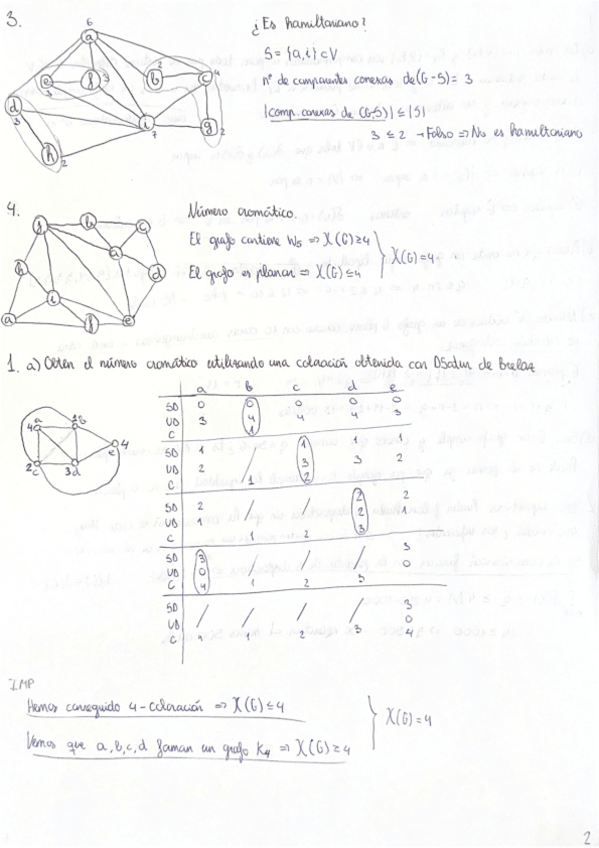 3.
¿Es hamiltoniano?
S = {a,i} ⊂ V
nº de componentes conexas de (G-S) = 3
|comp. conexas de (G-S)| ≤ |S|
3 ≤ 2 → Falso ⇒ No es hamiltoniano
6
a
e
3
f
3
b
2
c
4
d
3
i
7
g
2
h
2
4.
Número cromático.
El grafo contiene W₅ ⇒ X(G) ≥ 4
El grafo es planar ⇒ X(G) ≤ 4
} X(G) = 4
b
c
a
d
h
i
e
a
f
1. a) Obten el número cromático utilizando una coloración obtenida con DSatur de Brelaz
a b c d e
SD 0 0 0 0 0
UD 3 4 4 4 3
C 1
SD 1 / 1 1 1
UD 2 / 3 3 2
C 1 2
SD 2 / / 2 2
UD 1 / / 2 1
C 1 2 3
SD 3 / / / 3
UD 0 / / / 0
C 4 1 2 3
SD / / / / 3
UD / / / / 0
C 4 1 2 3 4
4 a
1 b
e 4
2 c
3 d
IMP
Hemos conseguido 4-coloración ⇒ X(G) ≤ 4
Vemos que a,b,c,d forman un grafo K₄ ⇒ X(G) ≥ 4
} X(G) = 4
2